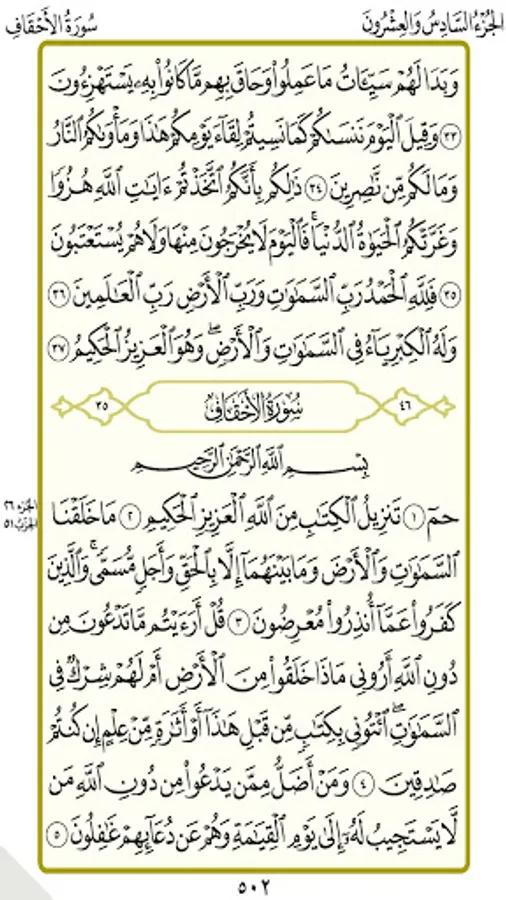 الجزء السادس والعشرون
سورة الأحقاف
وَبَدَا لَهُمْ سَيِّـَٔاتُ مَا عَمِلُوا۟ وَحَاقَ بِهِم مَّا كَانُوا۟ بِهِۦ يَسْتَهْزِءُونَ
٣٣ وَقِيلَ ٱلْيَوْمَ نَنسَىٰكُمْ كَمَا نَسِيتُمْ لِقَآءَ يَوْمِكُمْ هَٰذَا وَمَأْوَىٰكُمُ ٱلنَّارُ
وَمَا لَكُم مِّن نَّٰصِرِينَ ٣٤ ذَٰلِكُم بِأَنَّكُمُ ٱتَّخَذْتُمْ ءَايَٰتِ ٱللَّهِ هُزُوًا
وَغَرَّتْكُمُ ٱلْحَيَوٰةُ ٱلدُّنْيَا ۚ فَٱلْيَوْمَ لَا يُخْرَجُونَ مِنْهَا وَلَا هُمْ يُسْتَعْتَبُونَ
٣٥ فَلِلَّهِ ٱلْحَمْدُ رَبِّ ٱلسَّمَٰوَٰتِ وَرَبِّ ٱلْأَرْضِ رَبِّ ٱلْعَٰلَمِينَ ٣٦
وَلَهُ ٱلْكِبْرِيَآءُ فِى ٱلسَّمَٰوَٰتِ وَٱلْأَرْضِ ۖ وَهُوَ ٱلْعَزِيزُ ٱلْحَكِيمُ ٣٧
٤٦ سورة الأحقاف ٣٥
بِسْمِ ٱللَّهِ ٱلرَّحْمَٰنِ ٱلرَّحِيمِ
الجزء ٢٦
الحزب ٥١
حمٓ ١ تَنزِيلُ ٱلْكِتَٰبِ مِنَ ٱللَّهِ ٱلْعَزِيزِ ٱلْحَكِيمِ ٢ مَا خَلَقْنَا
ٱلسَّمَٰوَٰتِ وَٱلْأَرْضَ وَمَا بَيْنَهُمَآ إِلَّا بِٱلْحَقِّ وَأَجَلٍ مُّسَمًّى ۚ وَٱلَّذِينَ
كَفَرُوا۟ عَمَّآ أُنذِرُوا۟ مُعْرِضُونَ ٣ قُلْ أَرَءَيْتُم مَّا تَدْعُونَ مِن
دُونِ ٱللَّهِ أَرُونِى مَاذَا خَلَقُوا۟ مِنَ ٱلْأَرْضِ أَمْ لَهُمْ شِرْكٌ فِى
ٱلسَّمَٰوَٰتِ ۖ ٱئْتُونِى بِكِتَٰبٍ مِّن قَبْلِ هَٰذَآ أَوْ أَثَٰرَةٍ مِّنْ عِلْمٍ إِن كُنتُمْ
صَٰدِقِينَ ٤ وَمَنْ أَضَلُّ مِمَّن يَدْعُوا۟ مِن دُونِ ٱللَّهِ مَن
لَّا يَسْتَجِيبُ لَهُۥٓ إِلَىٰ يَوْمِ ٱلْقِيَٰمَةِ وَهُمْ عَن دُعَآئِهِمْ غَٰفِلُونَ ٥
٥٠٢